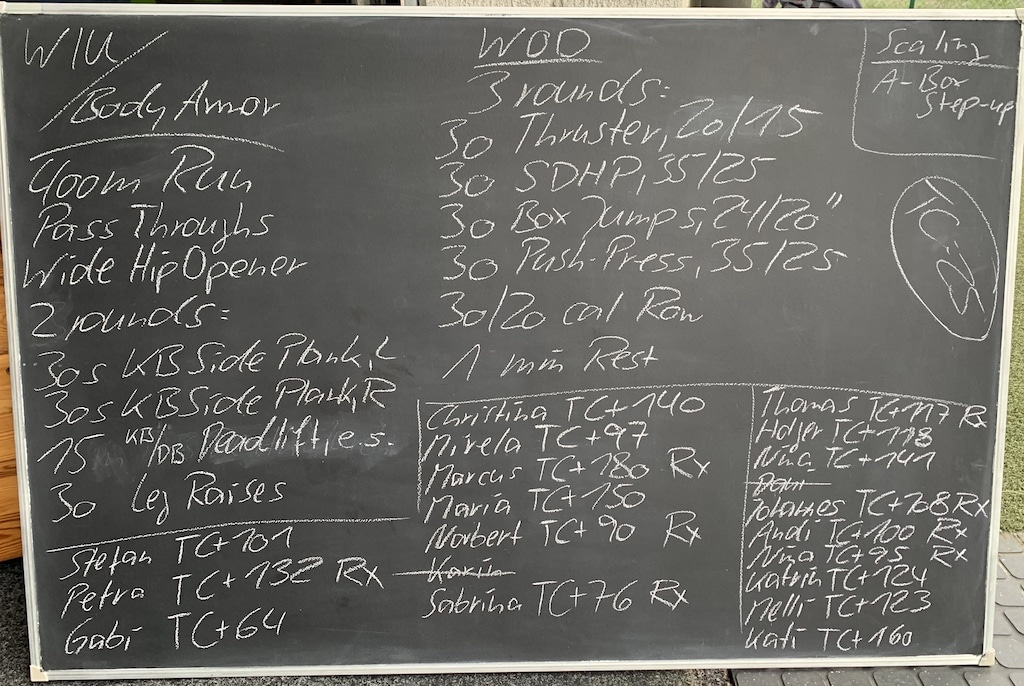 WIU/
Body Armor
400m Run
Pass Throughs
Wide Hip Opener
2 rounds:
30s KB Side Plank, L
30s KB Side Plank, R
15 KB/DB Deadlift, e.s.
30 Leg Raises
Stefan TC+101
Petra TC+132 Rx
Gabi TC+64
WOD
3 rounds:
30 Thruster, 20/15
30 SDHP, 35/25
30 Box Jumps, 24/20"
30 Push-Press, 35/25
30/20 cal Row
1 min Rest
Christina TC+140
Mirela TC+97
Marcus TC+180 Rx
Maria TC+150
Norbert TC+90 Rx
Karin
Sabrina TC+76 Rx
Scaling
A-Box
Step-up
Thomas TC+117 Rx
Holger TC+118
Nina TC+141
Johannes TC+108 Rx
Andi TC+100 Rx
Nina TC+95 Rx
Katrin TC+124
Melli TC+123
Kati TC+160